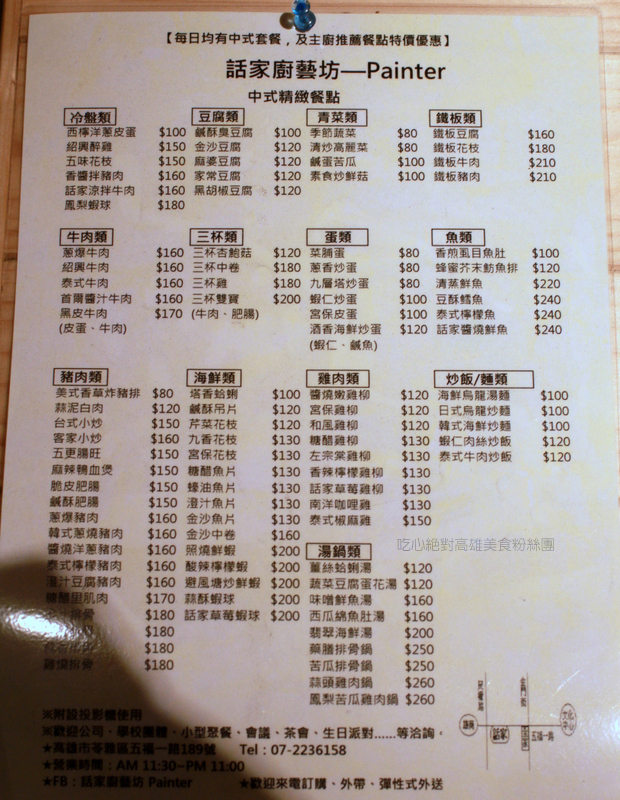 【每日均有中式套餐，及主廚推薦餐點特價優惠】
話家廚藝坊—Painter
中式精緻餐點
冷盤類
西檸洋蔥皮蛋 $100
紹興醉雞 $150
五味花枝 $150
香醬拌豬肉 $160
話家涼拌牛肉 $160
鳳梨蝦球 $180
豆腐類
鹹酥臭豆腐 $100
金沙豆腐 $120
麻婆豆腐 $120
家常豆腐 $120
黑胡椒豆腐 $120
青菜類
季節蔬菜 $80
清炒高麗菜 $80
鹹蛋苦瓜 $100
素食炒鮮菇 $100
鐵板類
鐵板豆腐 $160
鐵板花枝 $180
鐵板牛肉 $210
鐵板豬肉 $210
牛肉類
蔥爆牛肉 $160
紹興牛肉 $160
泰式牛肉 $160
首爾醬汁牛肉 $160
黑皮牛肉 $170
(皮蛋、牛肉)
三杯類
三杯杏鮑菇 $120
三杯中卷 $180
三杯雞 $180
三杯雙寶 $200
(牛肉、肥腸)
蛋類
菜脯蛋 $80
蔥香炒蛋 $80
九層塔炒蛋 $80
蝦仁炒蛋 $100
宮保皮蛋 $100
酒香海鮮炒蛋 $120
(蝦仁、鹹魚)
魚類
香煎虱目魚肚 $100
蜂蜜芥末魴魚排 $120
清蒸鮮魚 $220
豆酥鱈魚 $240
泰式檸檬魚 $240
話家醬燒鮮魚 $240
豬肉類
美式香草炸豬排 $80
蒜泥白肉 $120
台式小炒 $150
客家小炒 $160
五更腸旺 $150
麻辣鴨血煲 $150
脆皮肥腸 $150
鹹酥肥腸 $150
蔥爆豬肉 $160
韓式蔥燒豬肉 $160
醬燒洋蔥豬肉 $160
泰式檸檬豬肉 $160
澄汁豆腐豬肉 $160
糖醋里肌肉 $170
排骨 $180
$180
$180
排骨 $180
海鮮類
塔香蛤蜊 $100
鹹酥吊片 $120
芹菜花枝 $120
九香花枝 $130
宮保花枝 $130
糖醋魚片 $130
蠔油魚片 $130
澄汁魚片 $130
金沙魚片 $130
金沙中卷 $160
照燒鮮蝦 $200
酸辣檸檬蝦 $200
避風塘炒鮮蝦 $200
蒜酥蝦球 $200
話家草莓蝦球 $200
雞肉類
醬燒嫩雞柳 $120
宮保雞柳 $120
和風雞柳 $120
糖醋雞柳 $130
左宗棠雞柳 $130
香辣檸檬雞柳 $130
話家草莓雞柳 $130
南洋咖哩雞 $130
泰式椒麻雞 $150
炒飯/麵類
海鮮烏龍湯麵 $100
日式烏龍炒麵 $100
韓式海鮮炒麵 $100
蝦仁肉絲炒飯 $120
泰式牛肉炒飯 $120
吃心絕對高雄美食粉絲團
湯鍋類
薑絲蛤蜊湯 $120
蔬菜豆腐蛋花湯 $120
味噌鮮魚湯 $160
西瓜綿魚肚湯 $160
翡翠海鮮湯 $200
藥膳排骨鍋 $250
苦瓜排骨鍋 $250
蒜頭雞肉鍋 $260
鳳梨苦瓜雞肉鍋 $260
※附設投影機使用
※歡迎公司、學校團體、小型聚餐、會議、茶會、生日派對......等洽詢。
★高雄市苓雅區五福一路189號 Tel：07-2236158
★營業時間：AM 11:30~PM 11:00
★FB：話家廚藝坊 Painter ★歡迎來電訂購、外帶、彈性式外送
話家
五福一路
文化中心